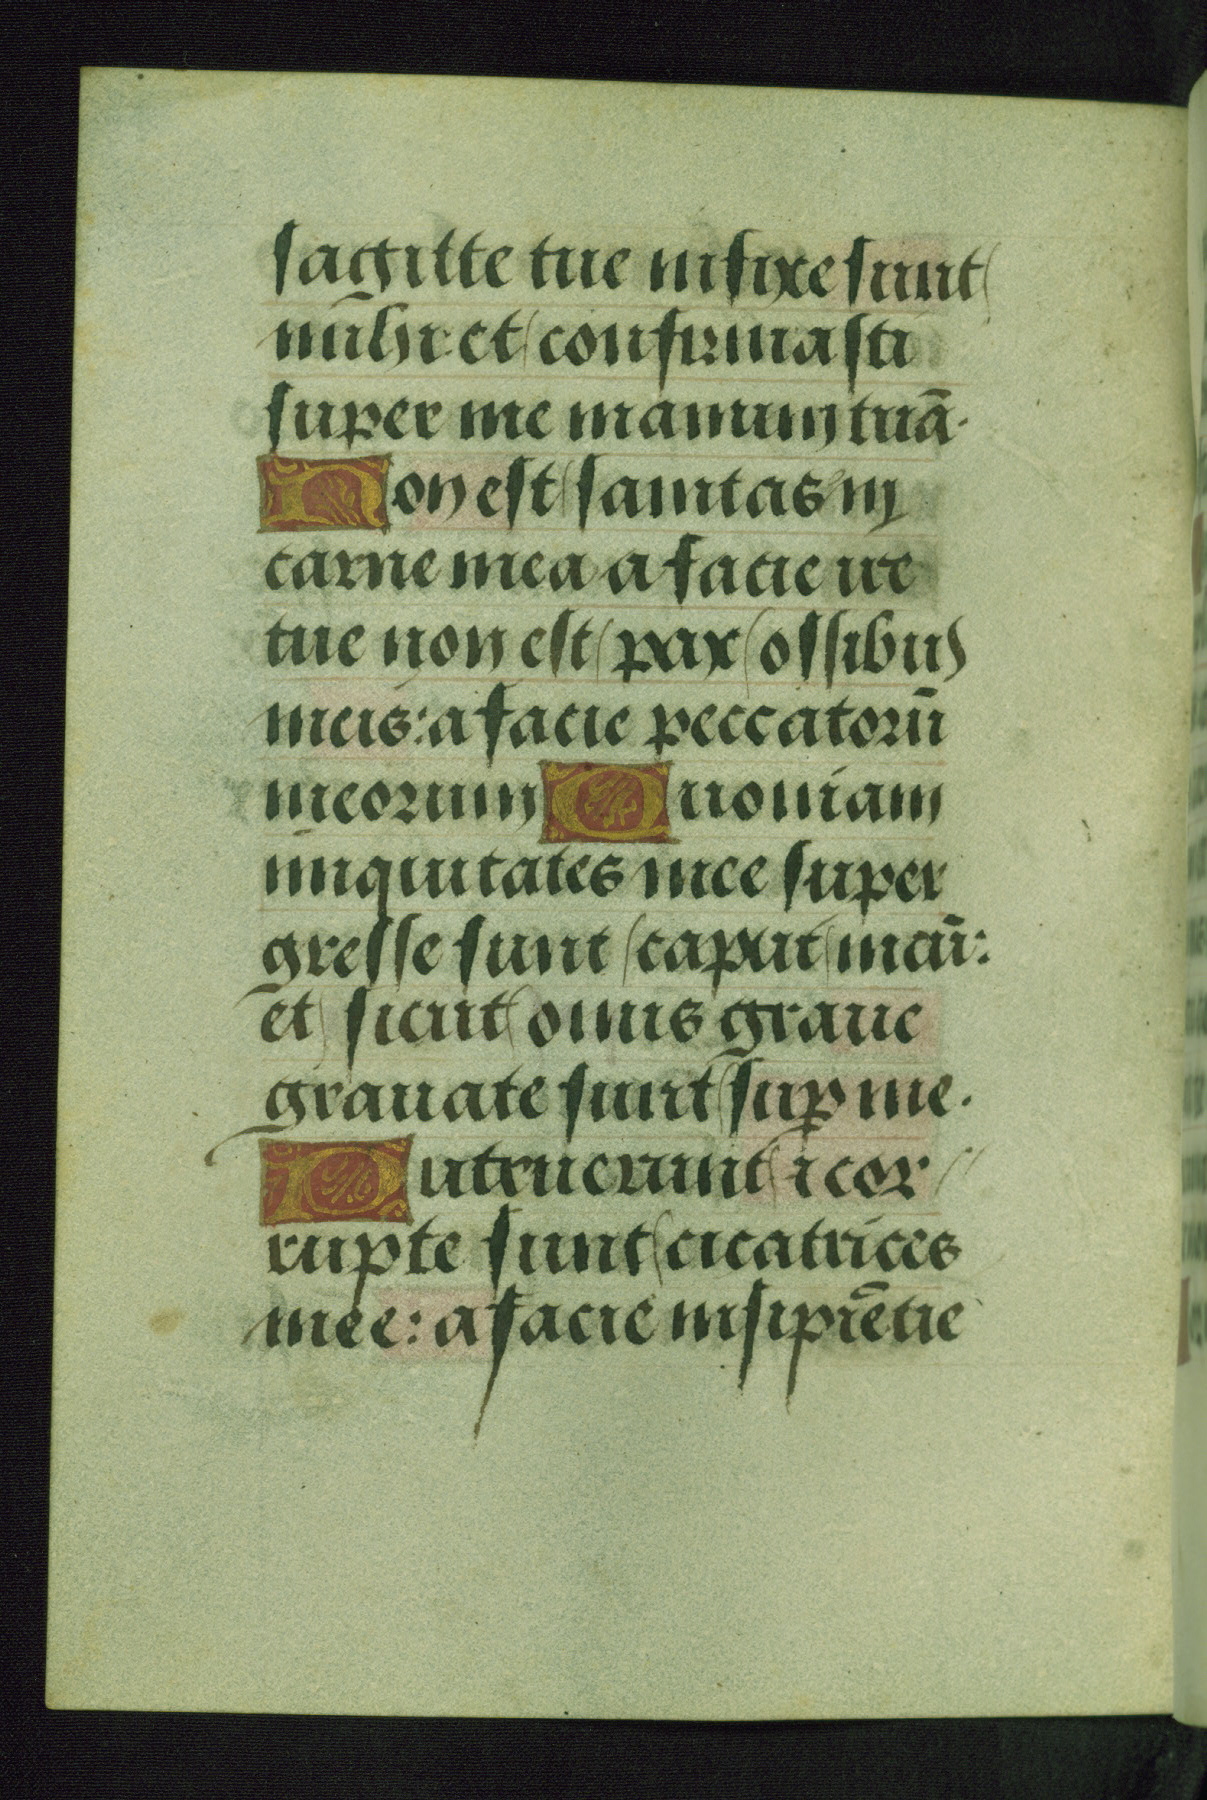 sagitte tue infixe sunt
michi: et confirmasti
super me manum tuā.
Non est sanitas in
carne mea a facie ire
tue non est pax ossibus
meis: a facie peccatorū
meorum Quoniam
iniquitates mee super
gresse sunt caput meū:
et sicut onus graue
grauate sunt suꝑ me.
Putruerunt ⁊ cor
rupte sunt cicatrices
mee: a facie insipiētie